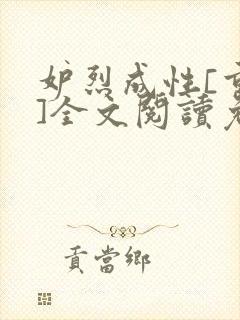 妒烈成性[重
]全文閱讀免
貢當鄉